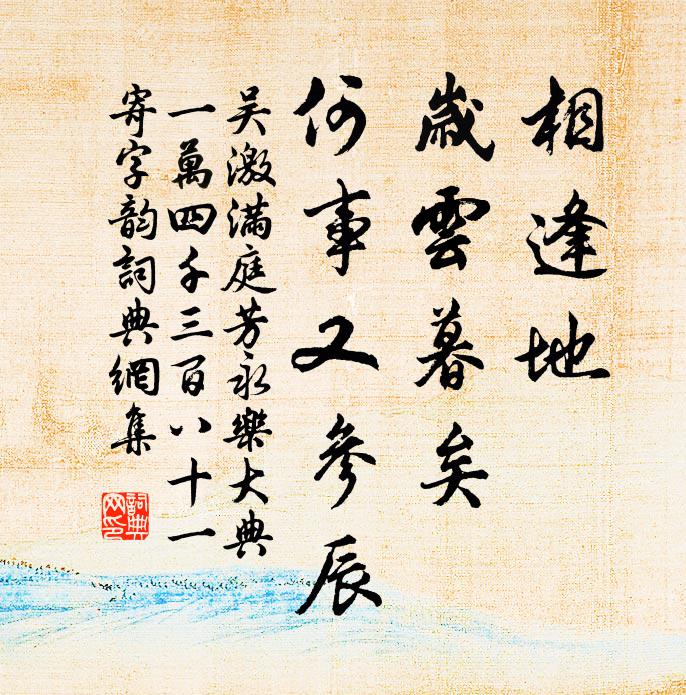 相逢地
歲雲暮矣
何事又參辰
吳激滿庭芳永樂大典
一萬四千三百八十一
寄字韵詞典網集
詞典
网印